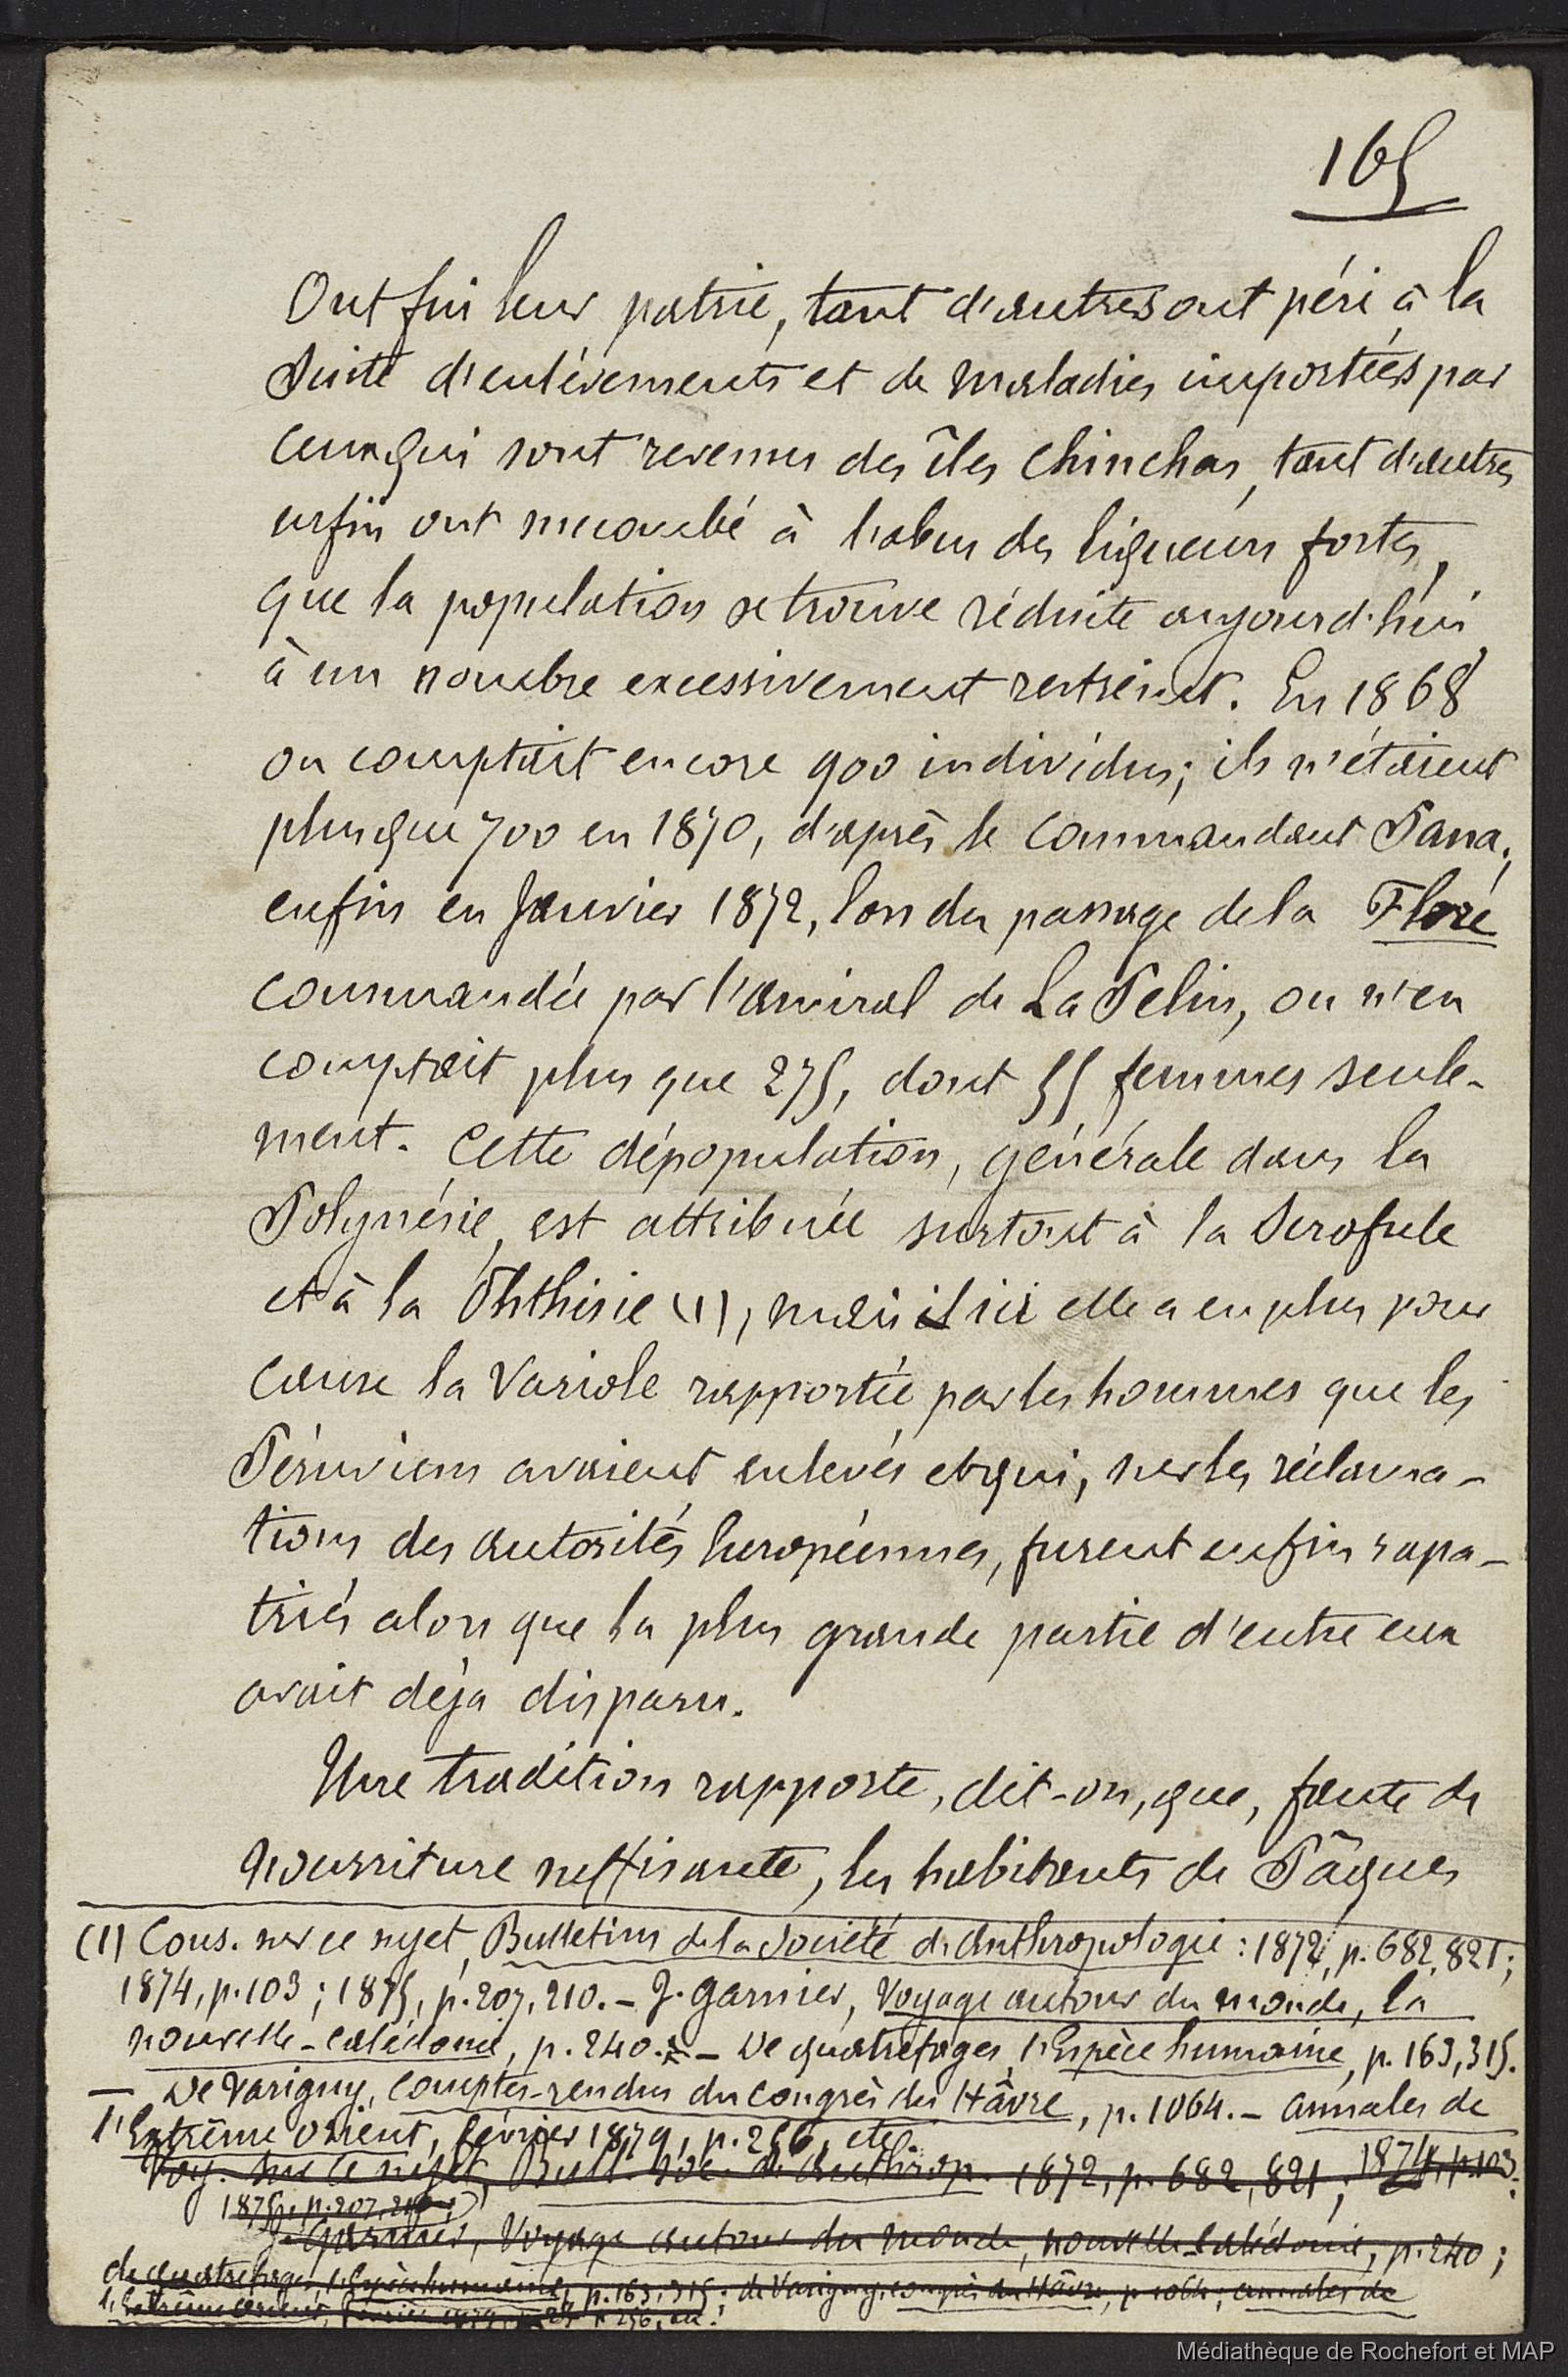 165
Ont fui leur patrie, tant d'autres ont péri à la
suite d'enlèvements et de maladies importées par
ceux qui sont revenus des îles Chinchas, tant d'autres
enfin ont succombé à l'abus des liqueurs fortes,
que la population se trouve réduite aujourd'hui
à un nombre excessivement restreint. En 1868
on comptait encore 900 individus; ils n'étaient
plus que 700 en 1870, d'après le Commandant Pana;
enfin en Janvier 1872, lors du passage de la Flore
commandée par l'amiral de La Pelin, on n'en
comptait plus que 275, dont 55 femmes seule-
ment. Cette dépopulation, générale dans la
Polynésie, est attribuée surtout à la Scrofule
et à la Phthisie (1), mais il ici elle a eu plus pour
cause la Variole rapportée par les hommes que les
Péruviens avaient enlevés et qui, sur les réclama-
tions des autorités Européennes, furent enfin rapa-
triés alors que la plus grande partie d'entre eux
avait déja disparu.
Une tradition rapporte, dit-on, que, faute de
nourriture suffisante, les habitants de Pâques
(1) Cons. sur ce sujet, Bulletins de la Société d'Anthropologie : 1872, p. 682, 821;
1874, p. 103; 1875, p. 207, 210. - J. Garnier, Voyage autour du monde, la
nouvelle-Calédonie, p. 240. - De Quatrefages, l'Espèce humaine, p. 163, 315.
— De Varigny, Comptes-rendus du Congrès du Hâvre, p. 1064. - Annales de
l'Extrême Orient, février 1879, p. 256, etc.
Voy. sur ce sujet, Bull. Soc. d'Anthrop. 1872, p. 682, 821; 1874, p. 103;
1875, p. 207, 210;
J. Garnier, Voyage autour du monde, nouvelle-Calédonie, p. 240;
de Quatrefages, l'Espèce humaine, p. 163, 315; de Varigny, Congrès du Hâvre, p. 1064; Annales de
l'Extrême Orient, février 1879, p. 256, etc.
Médiathèque de Rochefort et MAP